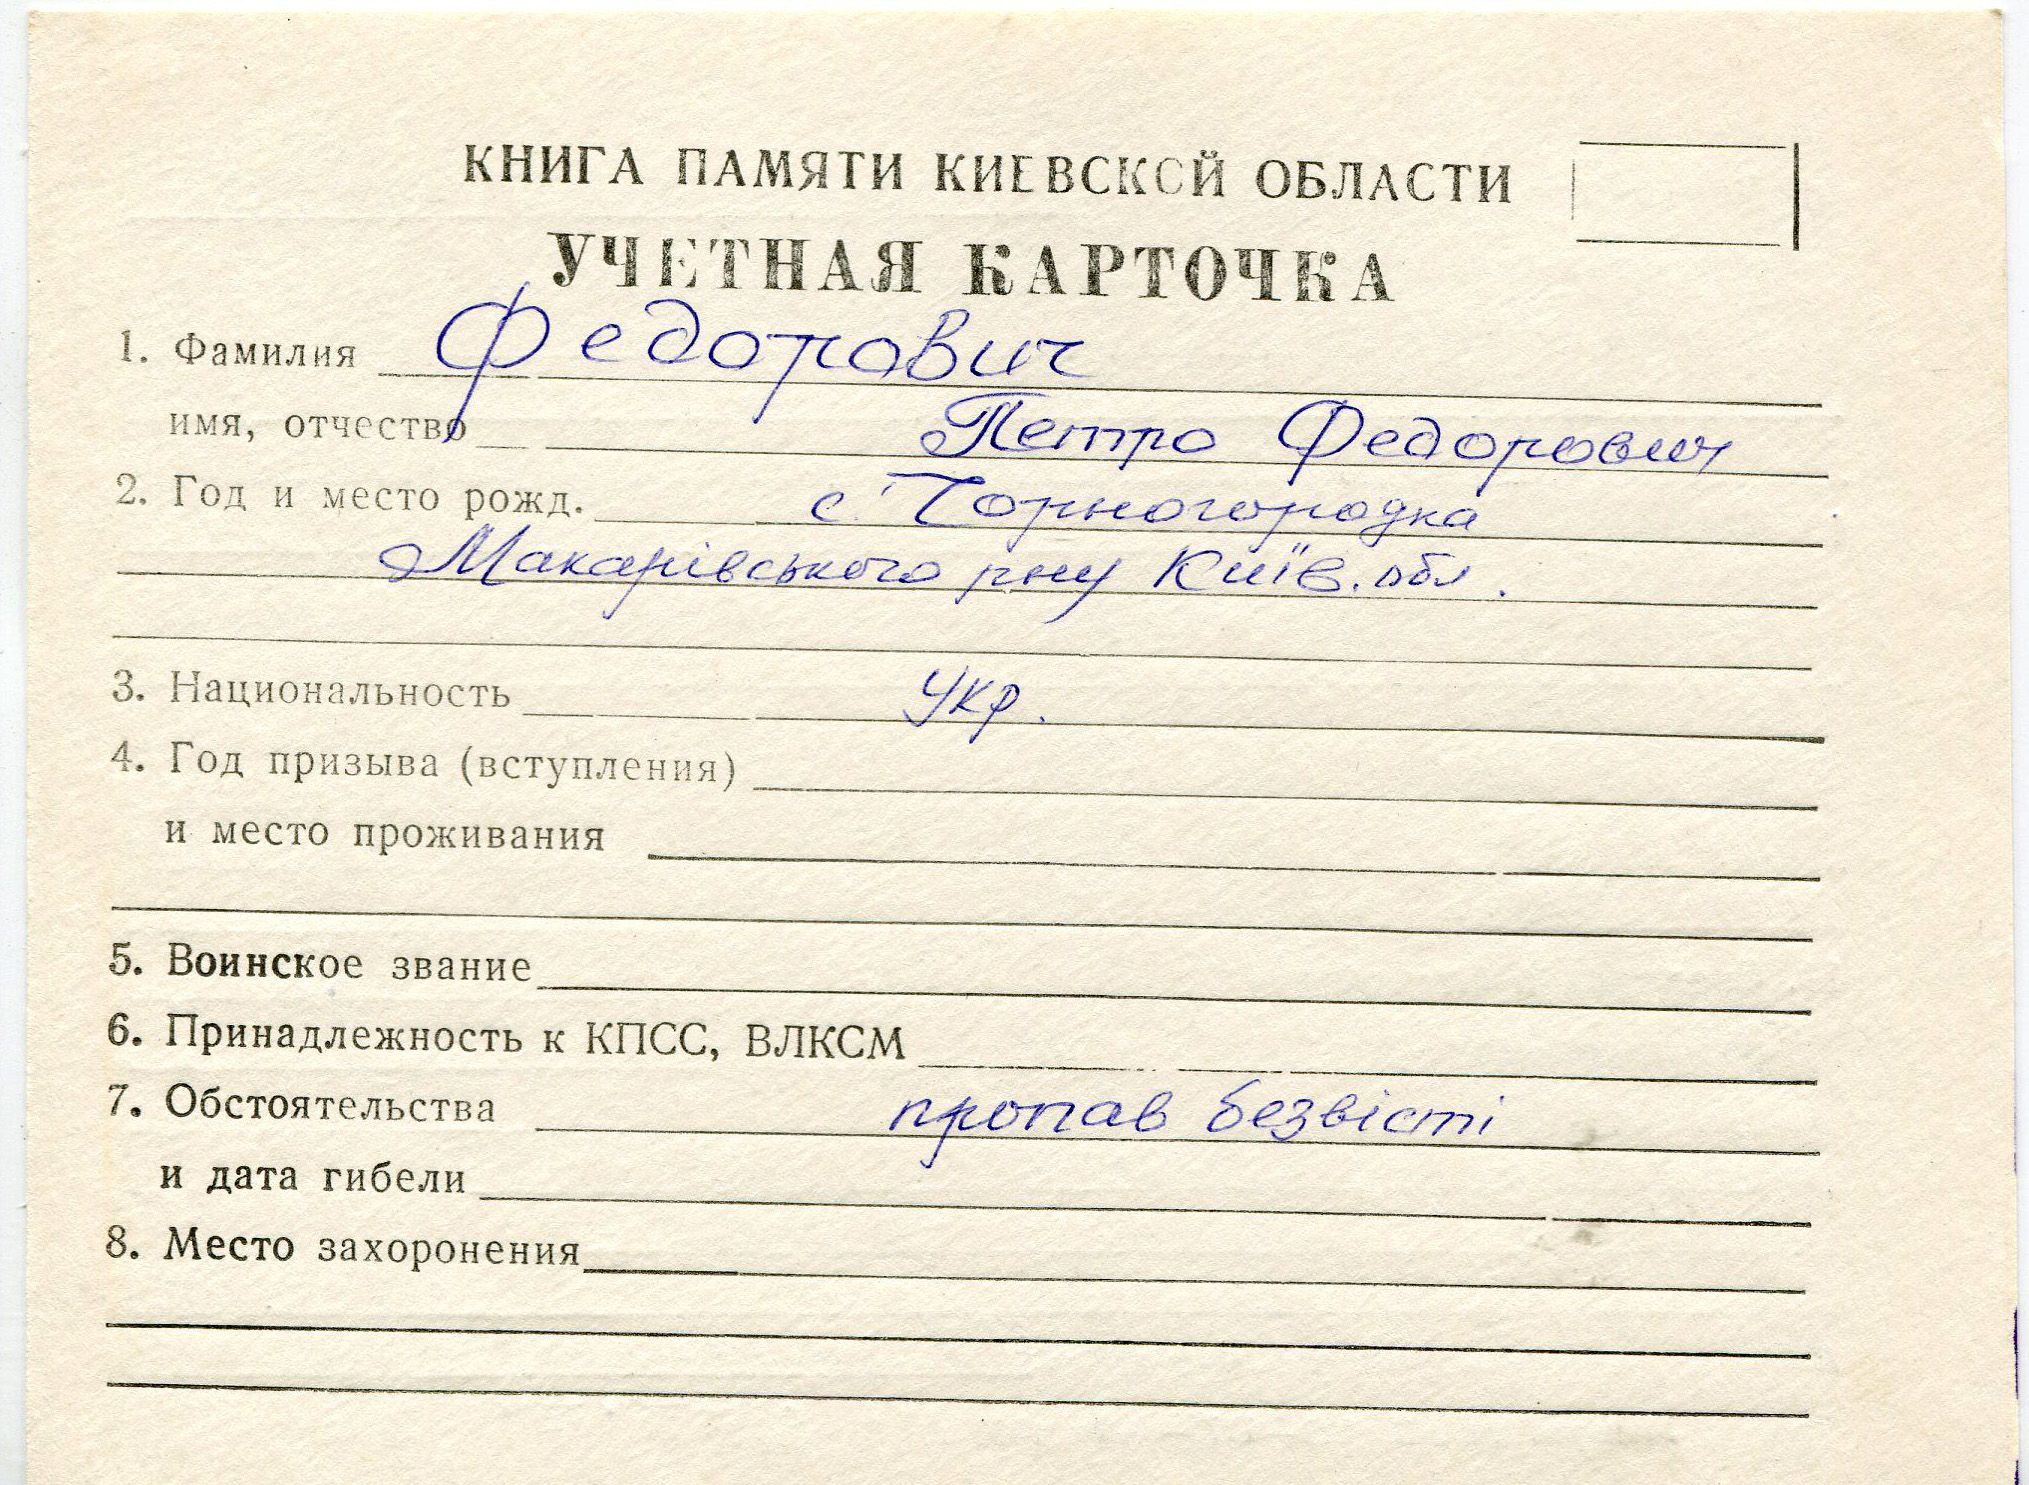 КНИГА ПАМЯТИ КИЕВСКОЙ ОБЛАСТИ
УЧЕТНАЯ КАРТОЧКА
1. Фамилия Федорович
имя, отчество Петро Федорович
2. Год и место рожд. с. Чорногородка
Макарівського р-ну Київ. обл.
3. Национальность Укр.
4. Год призыва (вступления)
и место проживания
5. Воинское звание
6. Принадлежность к КПСС, ВЛКСМ
7. Обстоятельства пропав безвісті
и дата гибели
8. Место захоронения